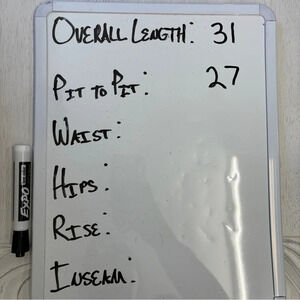 OVERALL LENGTH: 31
PIT TO PIT: 27
WAIST:
HIPS:
RISE:
INSEAM:
EXPO